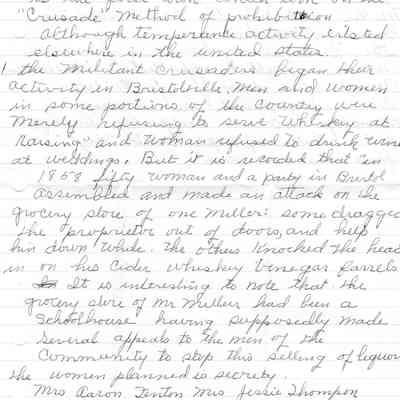 "Crusade" Method of prohibition
Although temperance activity existed
elsewhere in the united states.
the Militant Crusaders began their
activity in Bristolville, Men and women
in some portions of the country were
Merely refusing to serve Whiskey at
Raising" and woman refused to drink wine
at weddings. But it is recorded that "in
1858 fifty woman and a party in Bristol
assembled and made an attack on the
grocery store of one Miller: some dragged
the proprietor out of doors, and help
him down while. the others Knocked the head
in on his Cider Whiskey Vinegar barrels
It is interesting to note that the
grocery store of Mr Miller had been a
Schoolhouse having supposedly made
several appeals to the men of the
Community to stop this selling of liquor
the women planned is secretly.
Mrs Aaron Fenton Mrs Jessie Thompson